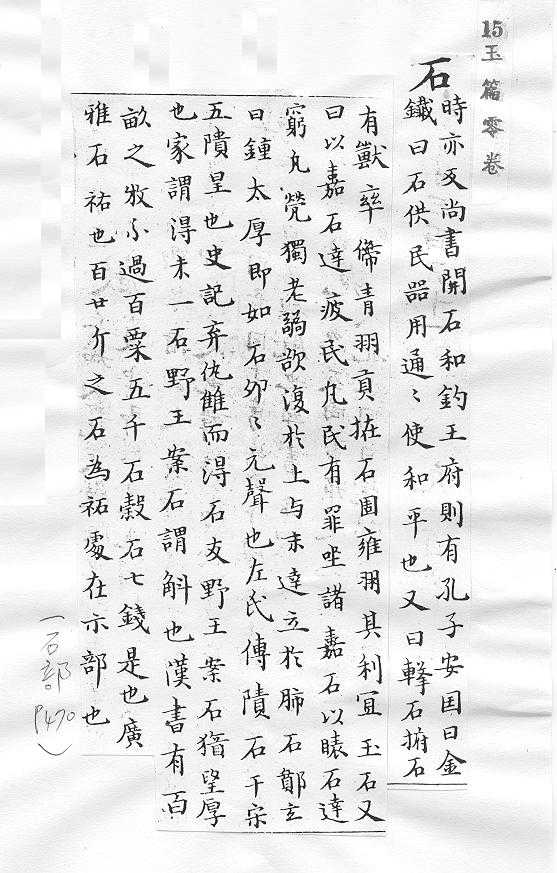 15玉篇零卷
石
時亦反尚書開石和鈞王府則有孔子安囯曰金
鐵曰石供民器用通〻使和平也又曰擊石拊石
有獸率儛青羽貢恠石固雍羽其利冝玉石又
曰以嘉石達疲民凡民有罪坐諸嘉石以石達
窮凡煢獨老弱欲復扵上与未達立扵肺石鄭玄
曰鍾太厚即如石卯〻无聲也左氏傳隤石于宋
五隤皇也史記弃仇雠而得石友野王案石猶堅厚
也家謂得未一石野王案石謂斛也漢書有百
畝之收不過百粟五千石穀石七錢是也廣
雅石祏也百廿斤之石為祏䖏在示部也
(一石部 P470)